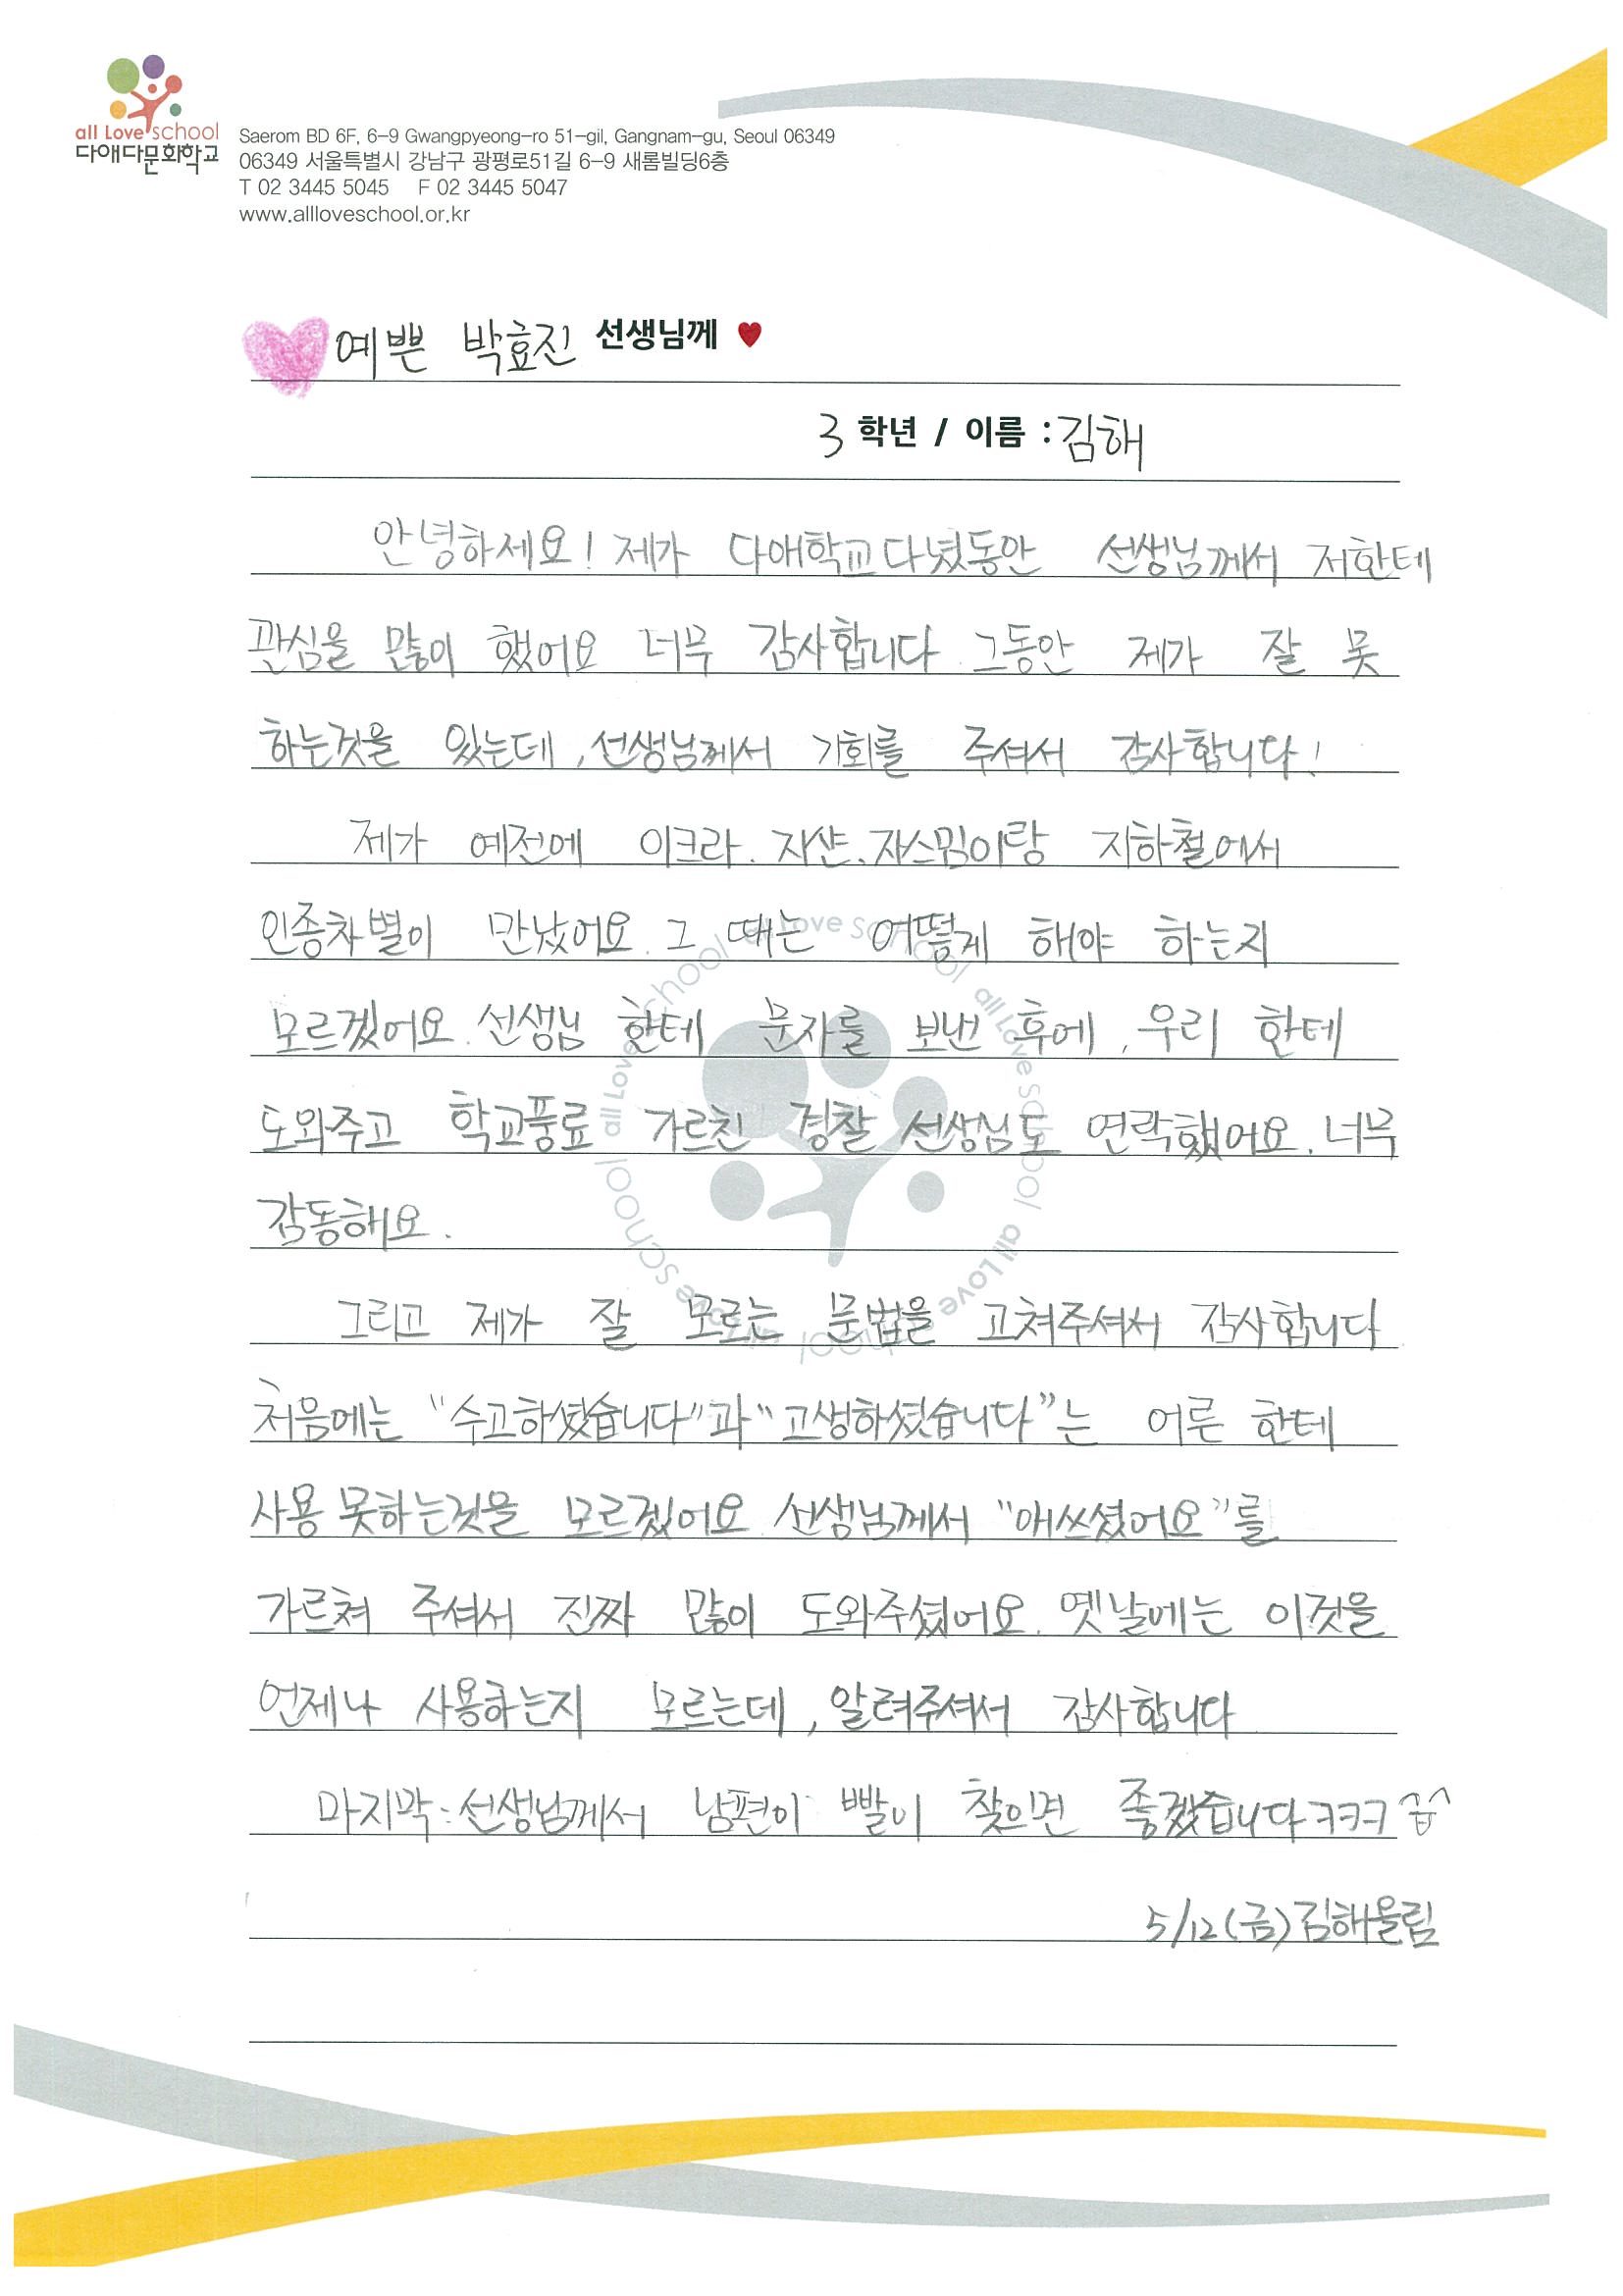 all Love school
다애다문화학교
Saerom BD 6F, 6-9 Gwangpyeong-ro 51-gil, Gangnam-gu, Seoul 06349
06349 서울특별시 강남구 광평로51길 6-9 새롬빌딩6층
T 02 3445 5045 F 02 3445 5047
www.allloveschool.or.kr
예쁜 박효진 선생님께 ♥
3 학년 / 이름 : 김해
안녕하세요! 제가 다애학교다녔동안 선생님께서 저한테
관심을 많이 했어요 너무 감사합니다. 그동안 제가 잘 못
하는것을 있는데, 선생님께서 기회를 주셔서 감사합니다!
제가 예전에 이크라. 자샨. 자스밈이랑 지하철에서
인종차별이 만났어요. 그 때는 어떻게 해야 하는지
모르겠어요. 선생님 한테 문자를 보낸 후에, 우리 한테
도와주고 학교풍료 가르친 경찰 선생님도 연락했어요. 너무
감동해요.
그리고 제가 잘 모르는 문법을 고쳐주셔서 감사합니다
처음에는 "수고하셨습니다"과 "고생하셨습니다"는 어른 한테
사용 못하는것을 모르겠어요. 선생님께서 "애쓰셨어요"를
가르쳐 주셔서 진짜 많이 도와주셨어요. 옛날에는 이것을
언제나 사용하는지 모르는데, 알려주셔서 감사합니다
마지막: 선생님께서 남편이 빨이 찾으면 좋겠습니다ㅋㅋㅋ
5/12(금) 김해올림
all Love school all Love school all Love school all Love school all Love school